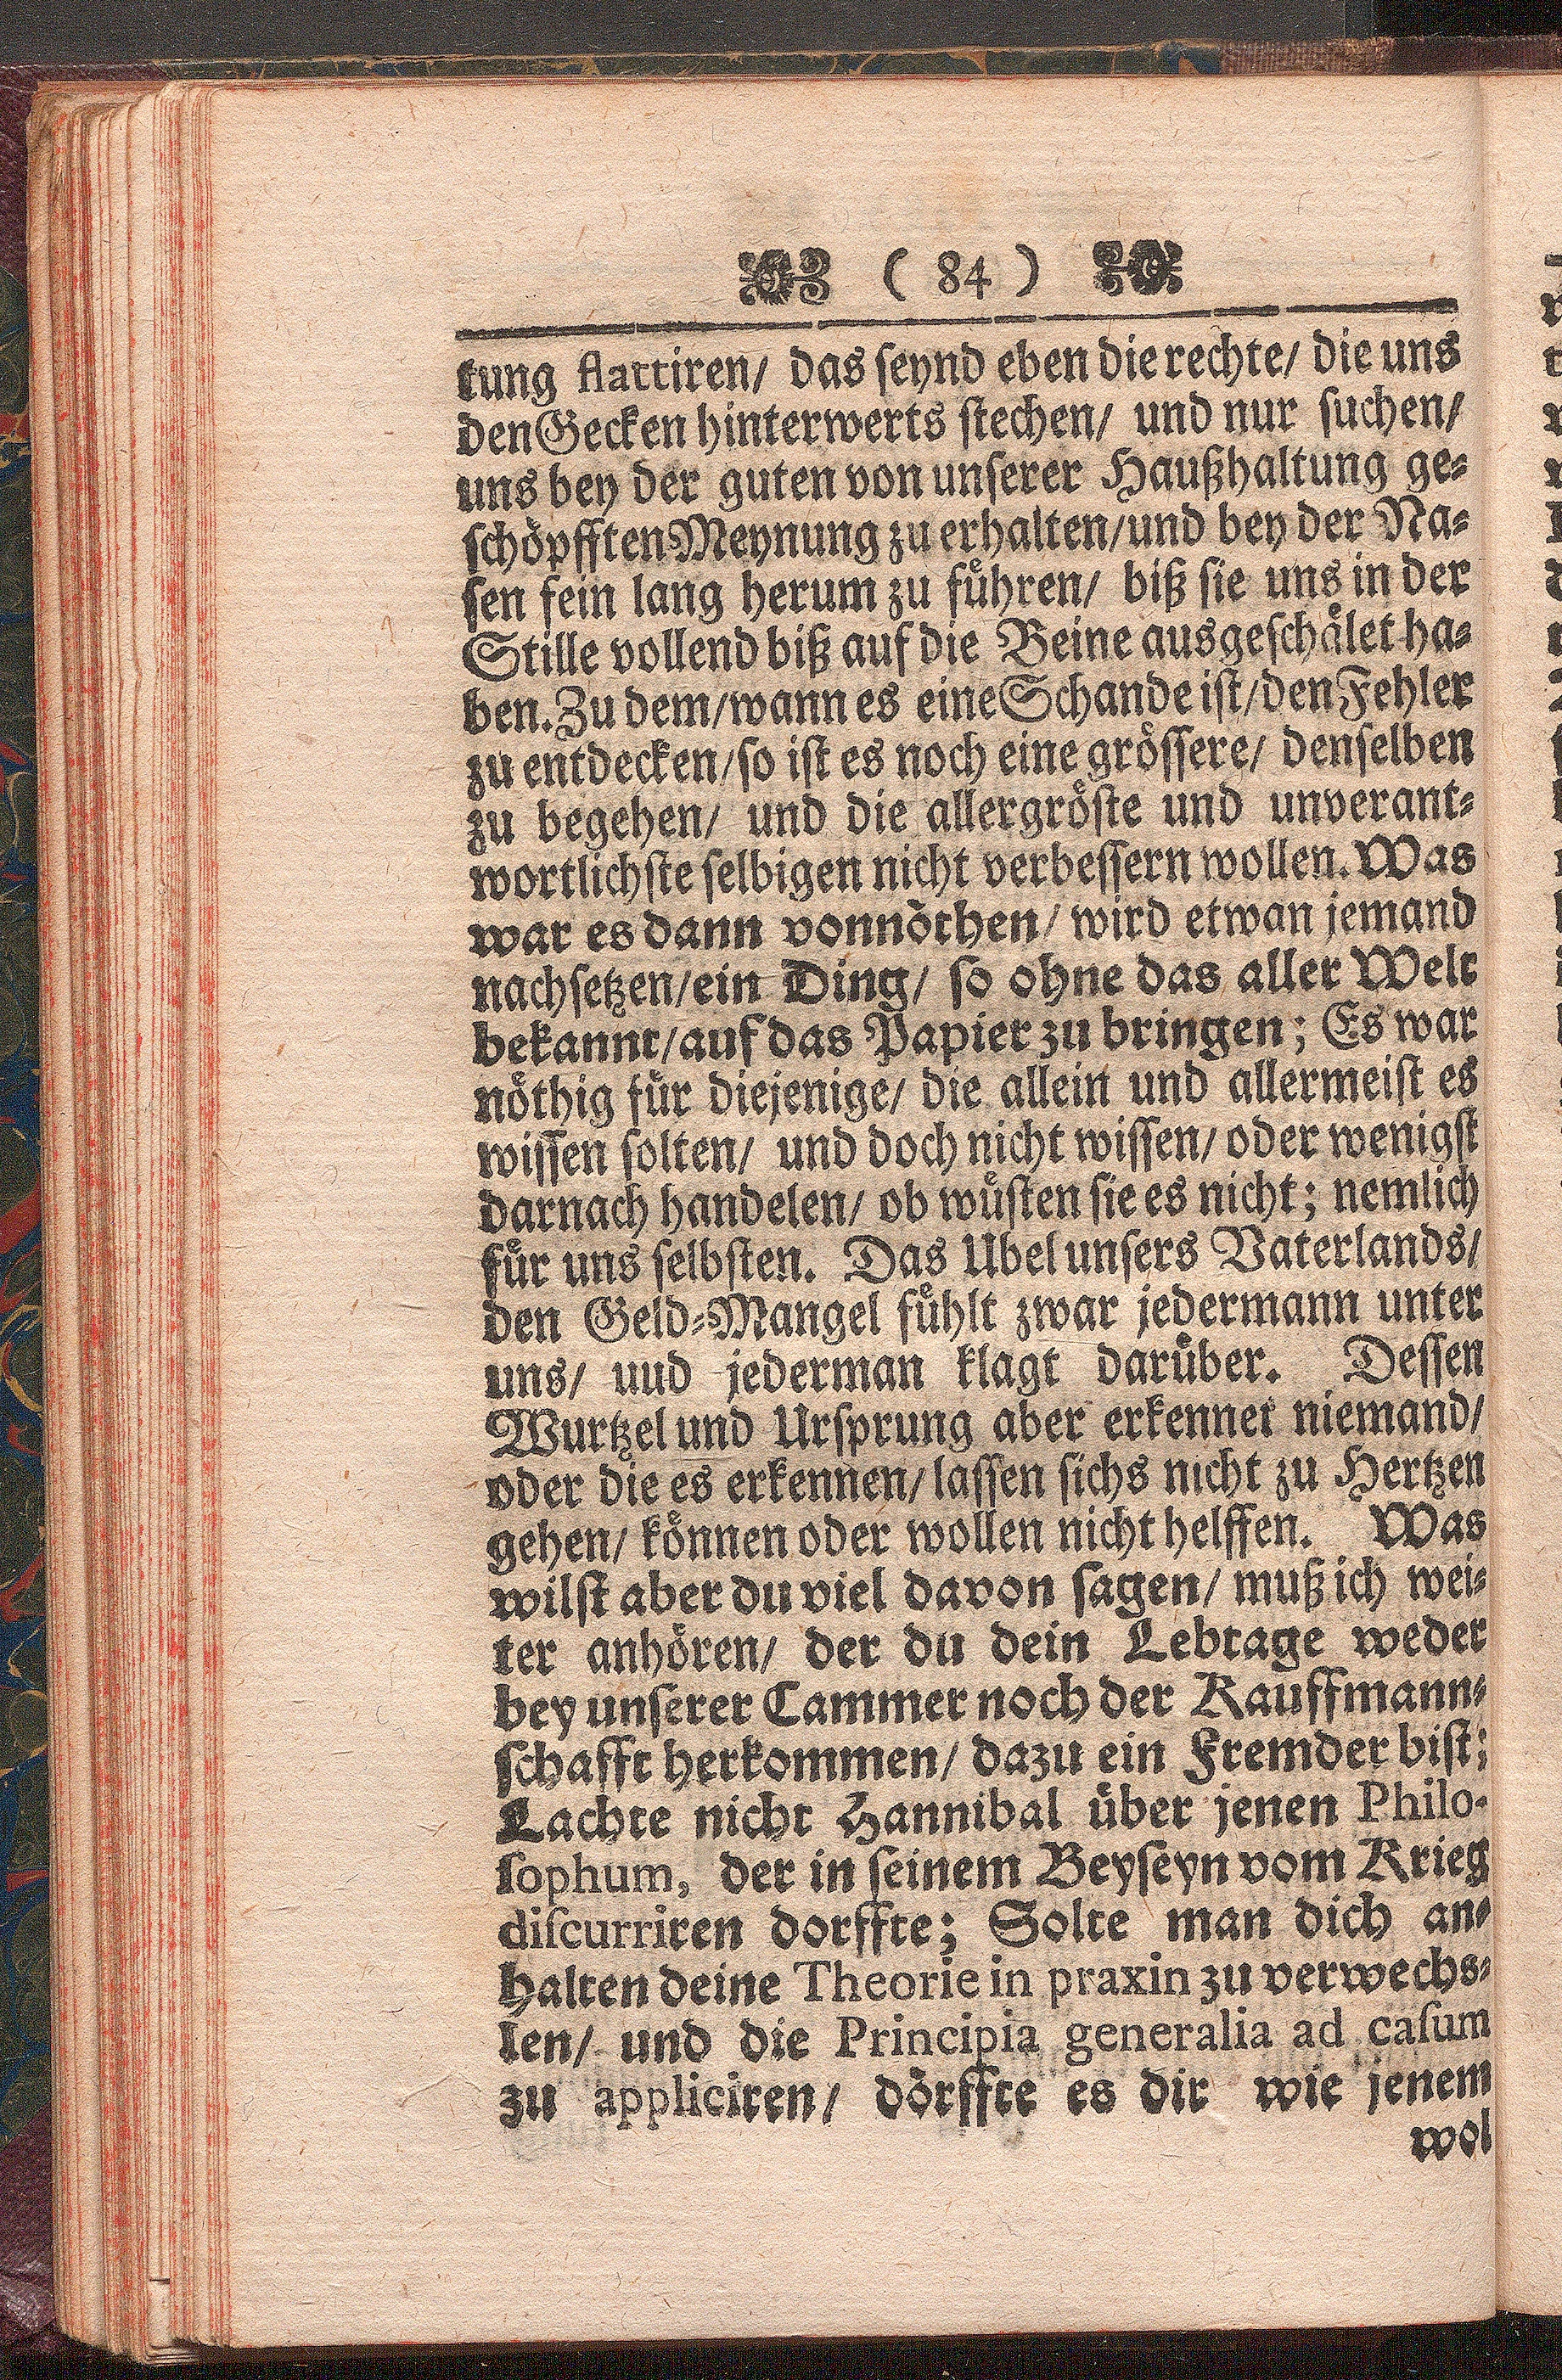 ( 84 )
tung flattiren/ das seynd eben die rechte/ die uns
den Gecken hinterwerts stechen/ und nur suchen/
uns bey der guten von unserer Haußhaltung ge-
schöpfften Meynung zu erhalten/und bey der Na-
sen fein lang herum zu führen/ biß sie uns in der
Stille vollend biß auf die Beine ausgeschälet ha-
ben. Zu dem/wann es eine Schande ist/den Fehler
zu entdecken/so ist es noch eine grössere/ denselben
zu begehen/ und die allergröste und unverant-
wortlichste selbigen nicht verbessern wollen. Was
war es dann vonnöthen/ wird etwan jemand
nachsetzen/ein Ding/ so ohne das aller Welt
bekannt/auf das Papier zu bringen; Es war
nöthig für diejenige/ die allein und allermeist es
wissen solten/ und doch nicht wissen/ oder wenigst
darnach handelen/ ob wüsten sie es nicht; nemlich
für uns selbsten. Das Ubel unsers Vaterlands/
den Geld-Mangel fühlt zwar jedermann unter
uns/ uud jederman klagt darüber. Dessen
Wurtzel und Ursprung aber erkennet niemand/
oder die es erkennen/ lassen sichs nicht zu Hertzen
gehen/ können oder wollen nicht helffen. Was
wilst aber du viel davon sagen/ muß ich wei-
ter anhören/ der du dein Lebtage weder
bey unserer Cammer noch der Kauffmann-
schafft herkommen/ dazu ein Fremder bist;
Lachte nicht Hannibal über jenen Philo-
sophum, der in seinem Beyseyn vom Krieg
discurriren dorffte; Solte man dich an-
halten deine Theorie in praxin zu verwechs-
len/ und die Principia generalia ad casum
zu appliciren/ dörffte es dir wie jenem
wol